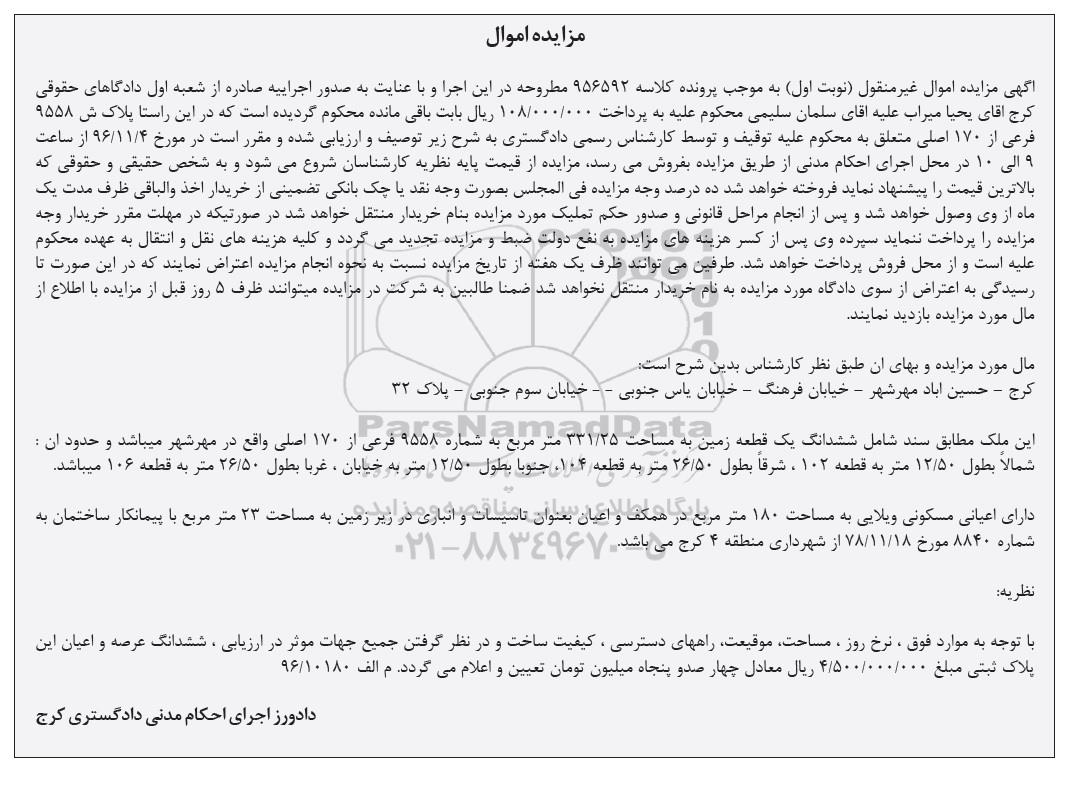 مزایده اموال
اگهی مزایده اموال غیرمنقول (نوبت اول) به موجب پرونده کلاسه ۹۵۶۵۹۲ مطروحه در این اجرا و با عنایت به صدور اجراییه صادره از شعبه اول دادگاهای حقوقی
کرج اقای یحیا میراب علیه اقای سلمان سلیمی محکوم علیه به پرداخت ۱۰۸/۰۰۰/۰۰۰ ریال بابت باقی مانده محکوم گردیده است که در این راستا پلاک ش ۹۵۵۸
فرعی از ۱۷۰ اصلی متعلق به محکوم علیه توقیف و توسط کارشناس رسمی دادگستری به شرح زیر توصیف و ارزیابی شده و مقرر است در مورخ ۹۶/۱۱/۴ از ساعت
۹ الی ۱۰ در محل اجرای احکام مدنی از طریق مزایده بفروش می رسد، مزایده از قیمت پایه نظریه کارشناسان شروع می شود و به شخص حقیقی و حقوقی که
بالاترین قیمت را پیشنهاد نماید فروخته خواهد شد ده درصد وجه مزایده فی المجلس بصورت وجه نقد یا چک بانکی تضمینی از خریدار اخذ والباقی ظرف مدت یک
ماه از وی وصول خواهد شد و پس از انجام مراحل قانونی و صدور حکم تملیک مورد مزایده بنام خریدار منتقل خواهد شد در صورتیکه در مهلت مقرر خریدار وجه
مزایده را پرداخت ننماید سپرده وی پس از کسر هزینه های مزایده به نفع دولت ضبط و مزایده تجدید می گردد و کلیه هزینه های نقل و انتقال به عهده محکوم
علیه است و از محل فروش پرداخت خواهد شد. طرفین می توانند ظرف یک هفته از تاریخ مزایده نسبت به نحوه انجام مزایده اعتراض نمایند که در این صورت تا
رسیدگی به اعتراض از سوی دادگاه مورد مزایده به نام خریدار منتقل نخواهد شد ضمنا طالبین به شرکت در مزایده میتوانند ظرف ۵ روز قبل از مزایده با اطلاع از
مال مورد مزایده بازدید نمایند.
مال مورد مزایده و بهای ان طبق نظر کارشناس بدین شرح است:
کرج - حسین اباد مهرشهر - خیابان فرهنگ - خیابان یاس جنوبی - - خیابان سوم جنوبی - پلاک ۳۲
ParsNamadData
این ملک مطابق سند شامل ششدانگ یک قطعه زمین به مساحت ۳۳۱/۲۵ متر مربع به شماره ۹۵۵۸ فرعی از ۱۷۰ اصلی واقع در مهرشهر میباشد و حدود ان :
شمالاً بطول ۱۲/۵۰ متر به قطعه ۱۰۲ ، شرقاً بطول ۲۶/۵۰ متر به قطعه ۱۰۴، جنوبا بطول ۱۲/۵۰ متر به خیابان ، غربا بطول ۲۶/۵۰ متر به قطعه ۱۰۶ میباشد.
پایگاه اطلاع رسانی مناقصه و مزایده
دارای اعیانی مسکونی ویلایی به مساحت ۱۸۰ متر مربع در همکف و اعیان بعنوان تاسیسات و انباری در زیر زمین به مساحت ۲۳ متر مربع با پیمانکار ساختمان به
شماره ۸۸۴۰ مورخ ۷۸/۱۱/۱۸ از شهرداری منطقه ۴ کرج می باشد.
۰۲۱-۸۸۳۴۹۶۷۰-۵
نظریه:
با توجه به موارد فوق ، نرخ روز ، مساحت، موقیعت، راههای دسترسی ، کیفیت ساخت و در نظر گرفتن جمیع جهات موثر در ارزیابی ، ششدانگ عرصه و اعیان این
پلاک ثبتی مبلغ ۴/۵۰۰/۰۰۰/۰۰۰ ریال معادل چهار صدو پنجاه میلیون تومان تعیین و اعلام می گردد. م الف ۹۶/۱۰۱۸۰
دادورز اجرای احکام مدنی دادگستری کرج